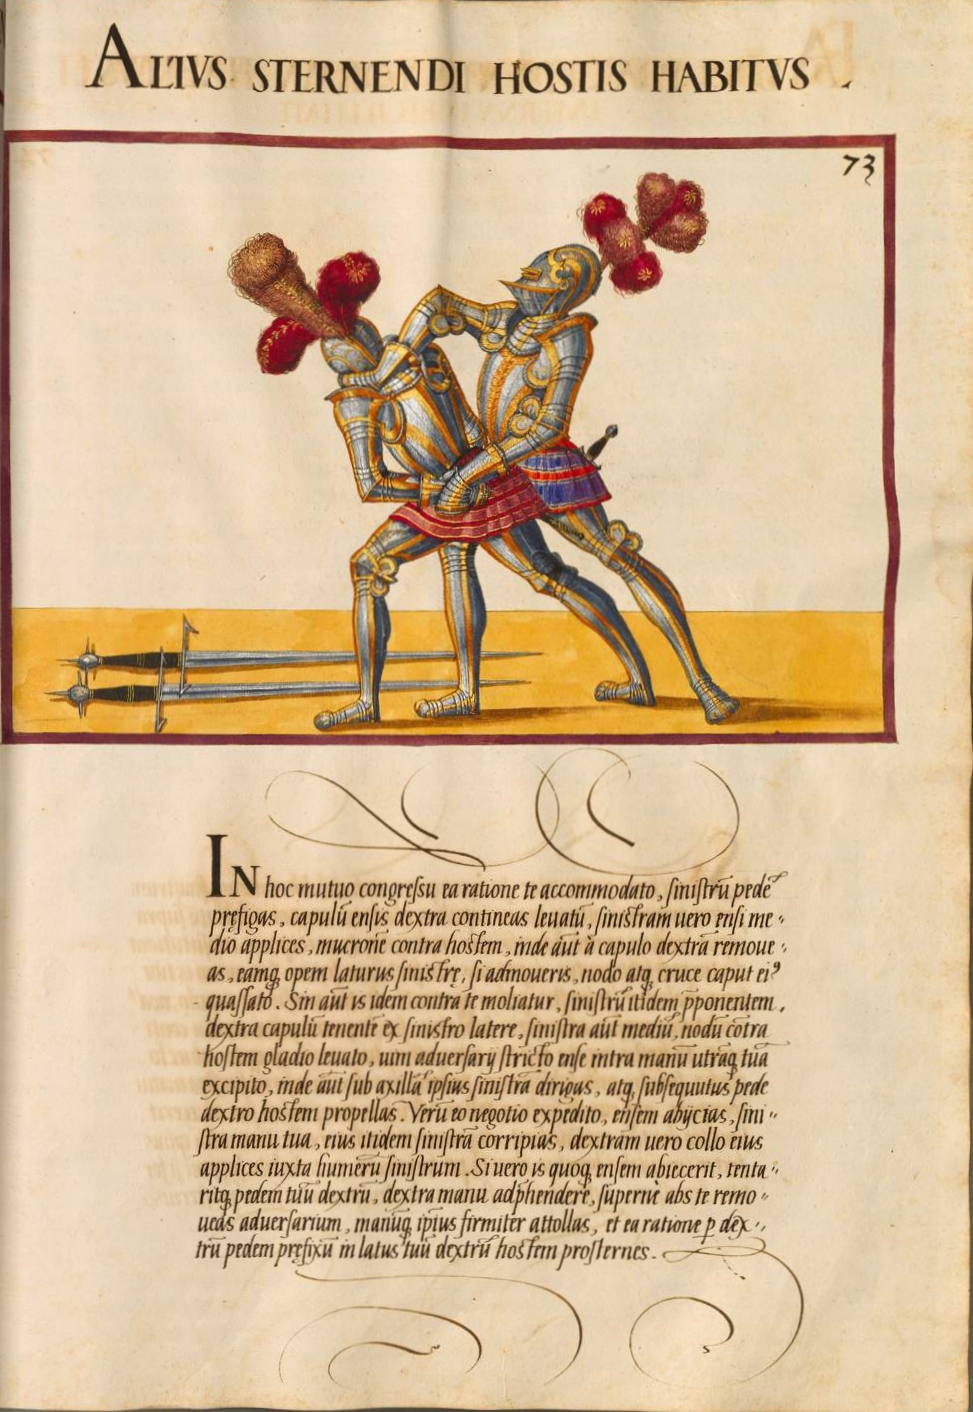 ALTVS STERNENDI HOSTIS HABITVS
73
IN hoc mutuo congreſsu ea ratione te accommodato, ſiniſtrũ pedẽ
pręfigas, capulũ enſis dextra contineas leuatũ, ſiniſtram uero enſi me-
dio applices, mucrone contra hoſtem, inde aũt à capulo dextrã remoue-
as, eamq opem laturus ſiniſtrę, ſi admoueris, nodo atq cruce caput ei⁹
quaſſato. Sin aũt is idem contra te moliatur, ſiniſtrũ itidem p̄ponentem,
dextra capulũ tenente ex ſiniſtro latere, ſiniſtra aũt mediũ, nodũ cõtra
hoſtem gladio leuato, uim aduerſarij ſtricto enſe intra manũ utrãq tuã
excipito, inde aũt ſub axillã ipſius ſiniſtrã dirigas, atq ſubſequutus pede
dextro hoſtem propellas. Verũ eo negotio expedito, enſem abijcias, ſini-
ſtra manu tua, eius itidem ſiniſtrã corripias, dextram uero collo eius
applices iuxta humerũ ſiniſtrum. Si uero is quoq enſem abiecerit, tenta-
ritq pedem tuũ dextrũ, dextra manu adp̄hendere, ſupernè abs te remo-
ueas aduerſarium, manũq ipſius firmiter attollas, et ea ratione ꝑ dex-
trũ pedem pręfixũ in latus tuũ dextrũ hoſtem proſternes.